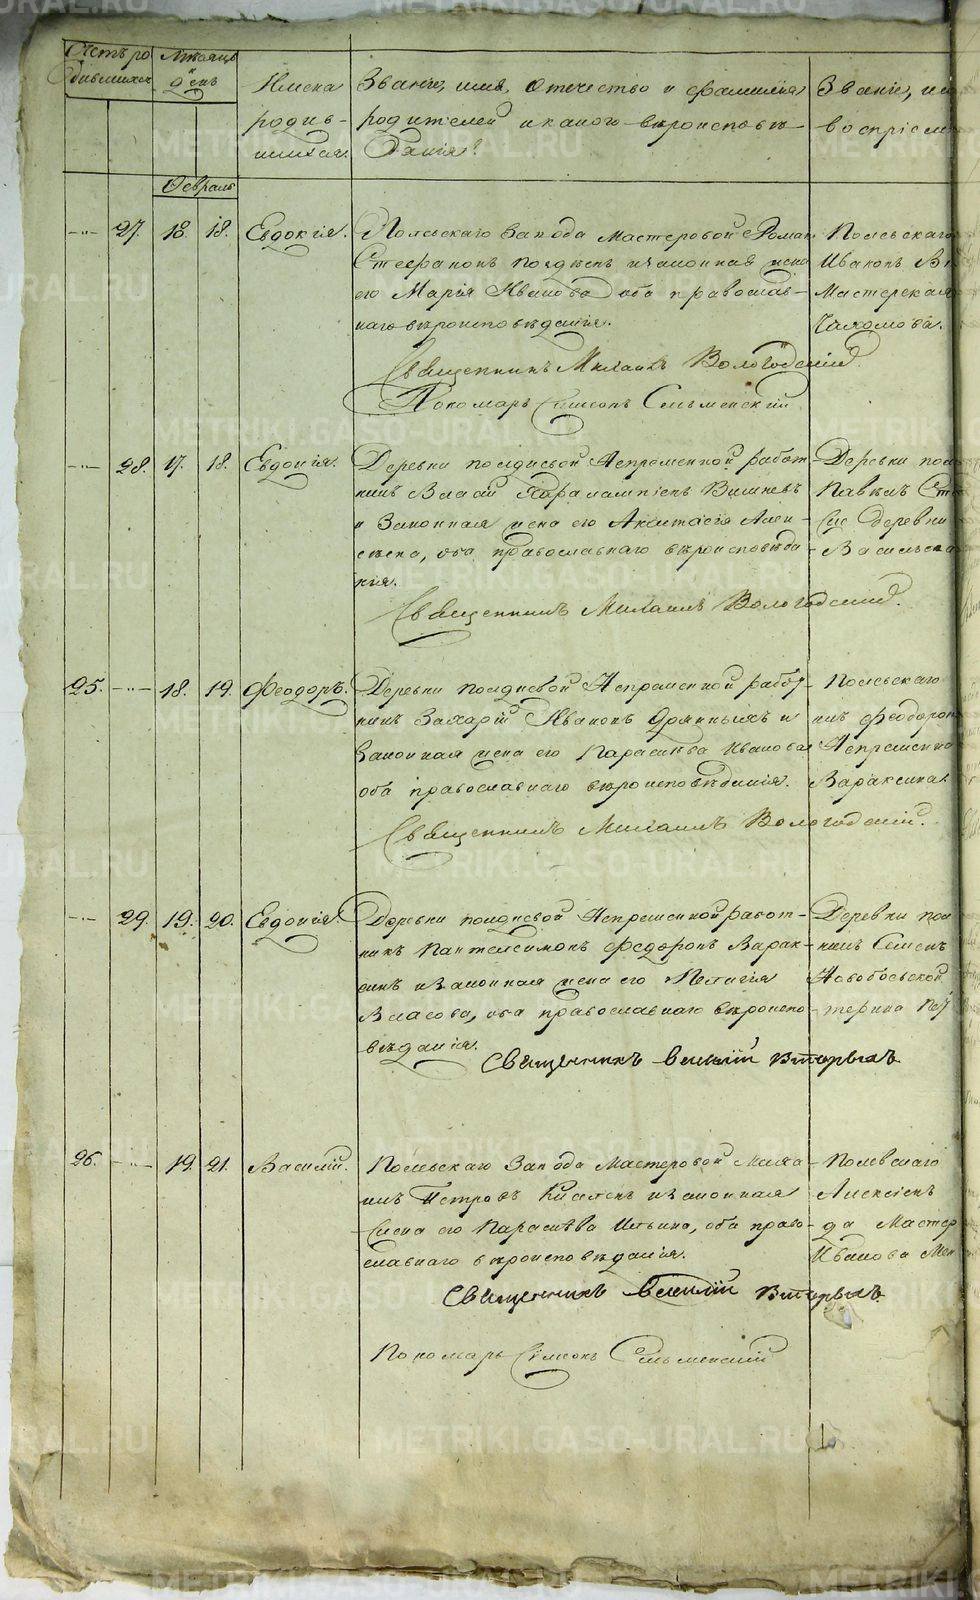 Счетъ ро
дившихся
Мѣсяцъ
и
день
Имена
родив-
шихся.
Званіе, имя, отечество и фамилія
родителей и какого вѣроисповѣ-
данія.
Званіе, им
воспріем
Февраль
27. 18. 18. Евдокія.
Полевскаго Завода Мастеровой Роман
Стефановъ и законная жена
его Марія Иванова оба православ-
наго вѣроисповѣданія.
Священникъ Михаилъ Вологодскій
Пономарь Симеонъ Сельменскій
Полевскаго
Ивановъ
Мастерская
Пахомова.
28. 17. 18. Евдокія.
Деревни полдневой Непременной работ
никъ Власій Харалампіевъ Вишневъ
и Законная жена его Анастасія Алек-
сѣева, оба православнаго вѣроисповѣда
нія.
Священникъ Михаилъ Вологодскій.
Деревни пол
Павелъ Ст
деревни
Васильева
25. 18. 19. Феодоръ.
Деревни полдневой Непременной работ
никъ Захарій Ивановъ Дрянныхъ и
Законная жена его Параскева Иванова
оба православнаго вѣроисповѣданія.
Священникъ Михаилъ Вологодскій.
Полевскаго
Феодоров
Непременно
Вараксина.
29. 19. 20. Евдокія.
Деревни полдневой Непременной работ-
никъ Пантелеимонъ Федоровъ Варак-
синъ и законная жена его Пелагія
Власова, оба православнаго вѣроиспо-
вѣданія.
Священникъ Василій Вторыхъ
Деревни пол
никъ Семенъ
терина
26. 19. 21. Василій.
Полевскаго Завода Мастеровой Миха
илъ Петровъ и законная
жена его Параскева Ильина, оба право-
славнаго вѣроисповѣданія.
Священникъ Василій Вторыхъ
Пономарь Симеонъ Сельменскій
Полевскаго
Алексіевъ
да Мастер
Иванова
METRIKI.GASO-URAL.RU